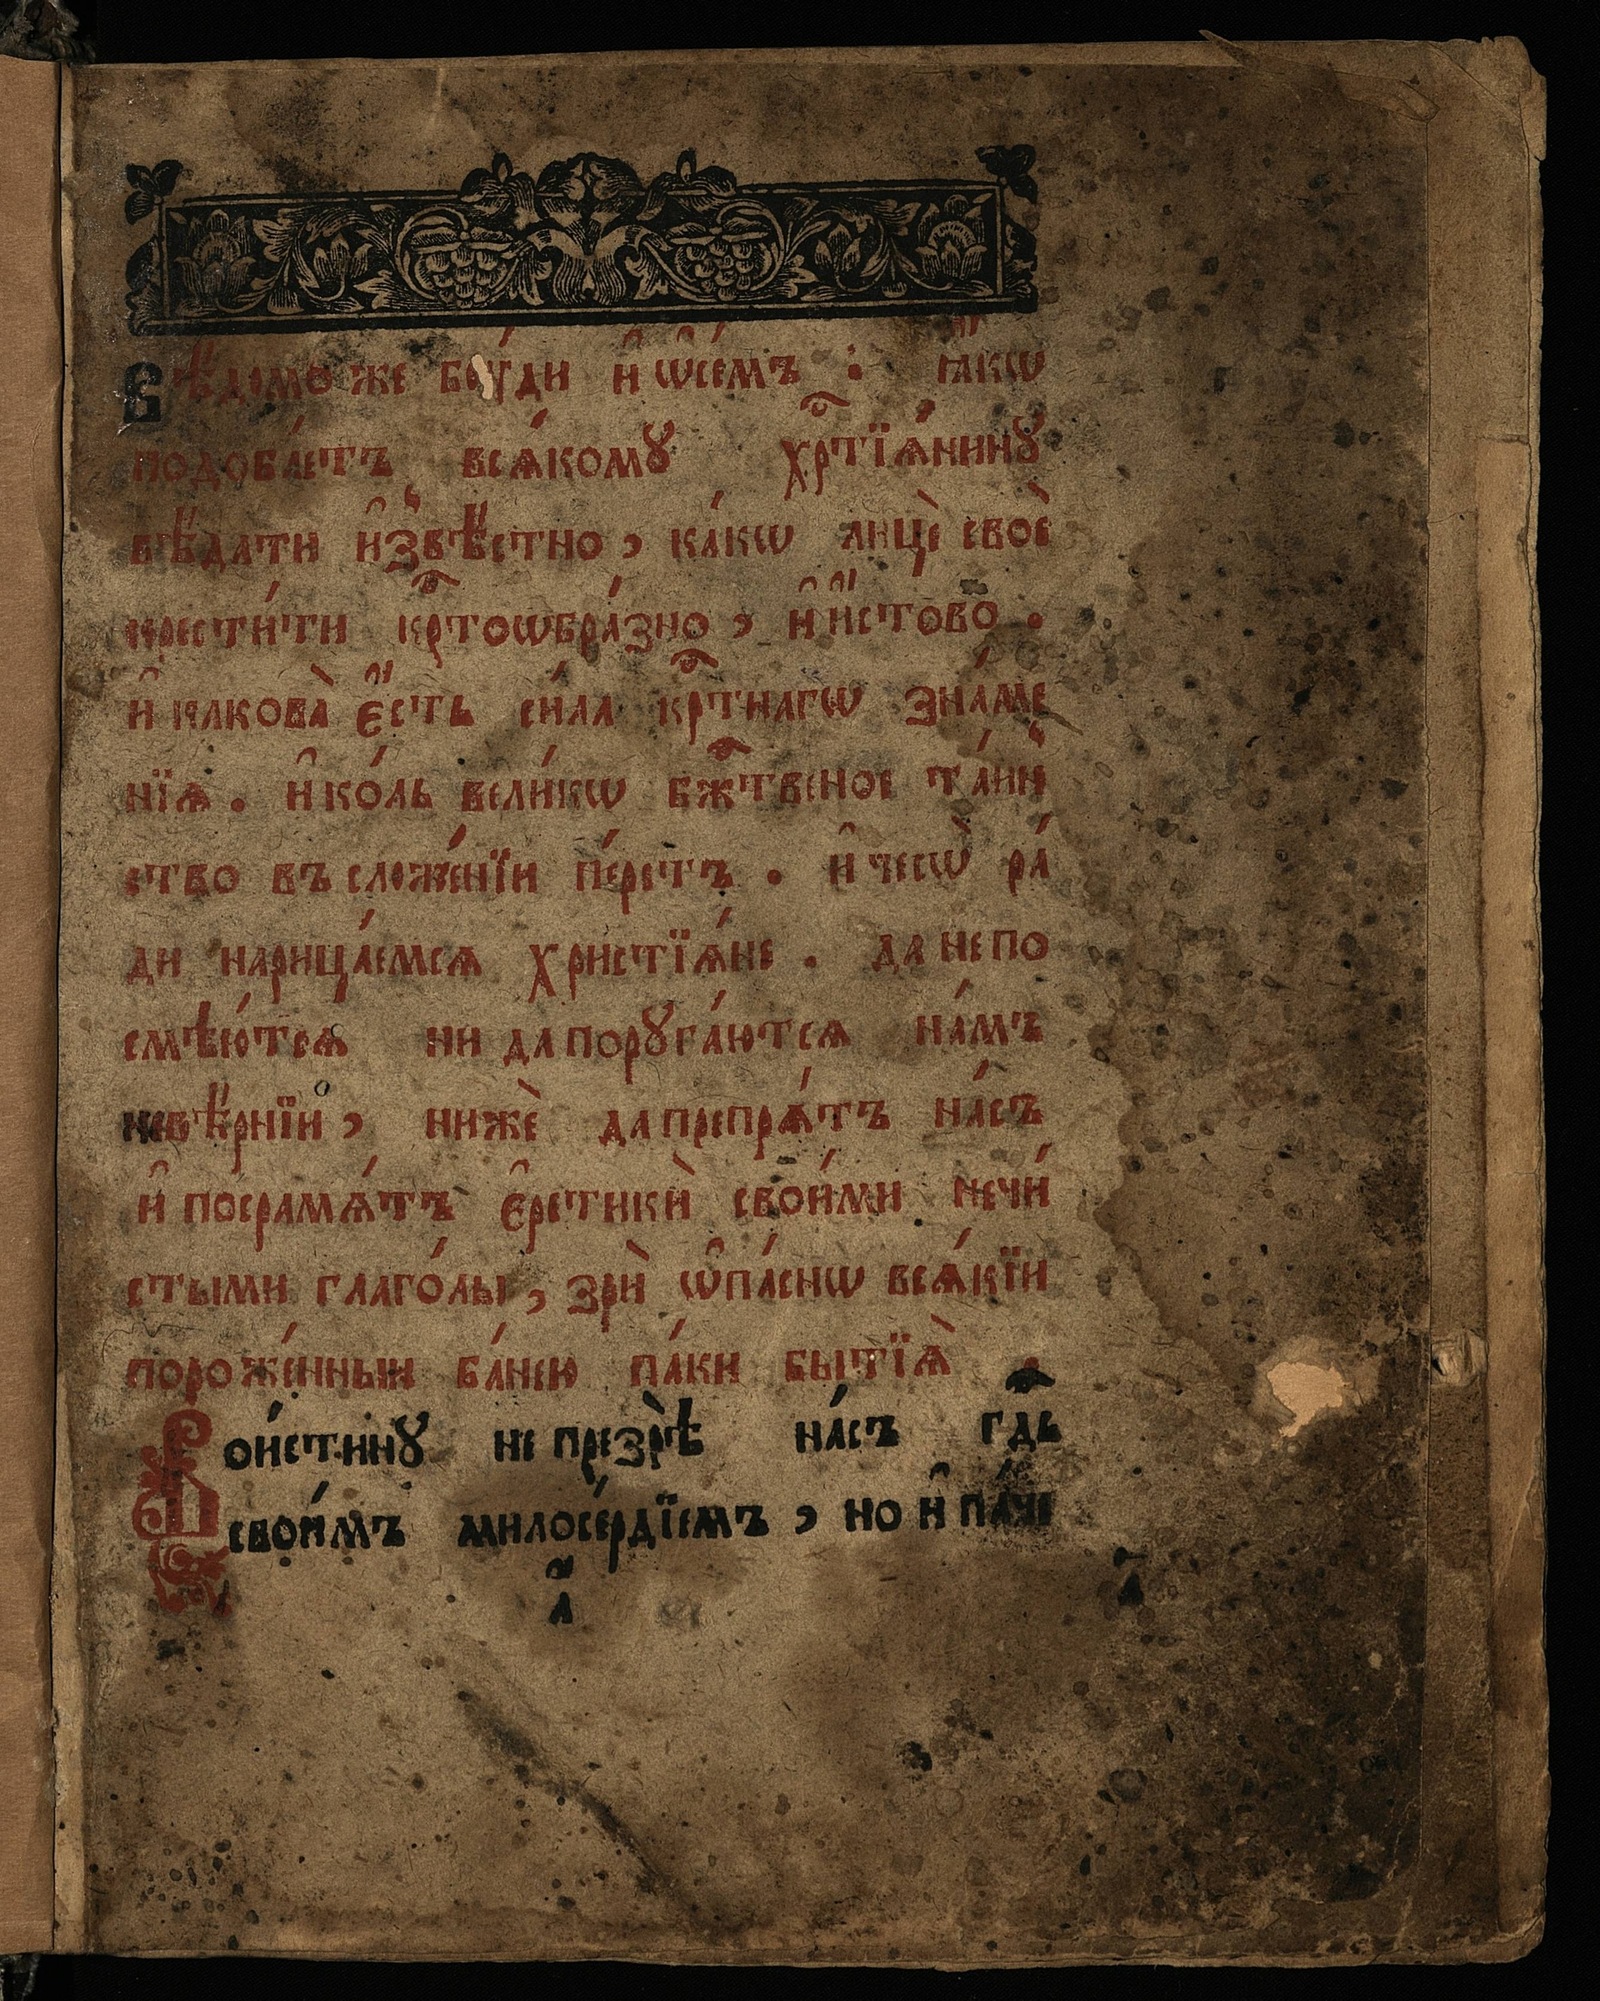 Вѣ́домо же бѹ́ди и҆ ѡ҆се́мъ : ꙗ҆́кѡ
подоба́етъ всѧ́комꙋ хрⷭ҇тїѧ́нинꙋ
вѣ́дати и҆звѣ́стно , ка́кѡ лицѐ своѐ
крести́ти крⷭ҇тоѡбра́зно , и҆ и҆́стово .
и҆ какова̀ є҆́сть си́ла крⷭ҇тнагѡ зна́ме
нїѧ . и҆ ко́ль вели́кѡ бжⷭ҇твеное та́ин
ство въ сложе́нїи пе́рстъ . и҆ чесѡ̀ ра́
ди нарица́емсѧ христїѧ́не . да не по
смѣю́тсѧ ни да порꙋга́ютсѧ на́мъ
невѣ́рнїи , нижѐ да препрѧ́тъ на́съ
и҆ посрамѧ́тъ є҆ретикѝ свои́ми нечи́
стыми глаго́лы , зрѝ ѡ҆па́снѡ всѧ́кїи
пороже́нныи ба́нею па́ки бытїѧ̀ .
Вои́стиннꙋ не презрѣ̀ на́съ гдⷭ҇ь
свои́мъ милосе́рдїемъ , но и҆ па́че
а҃